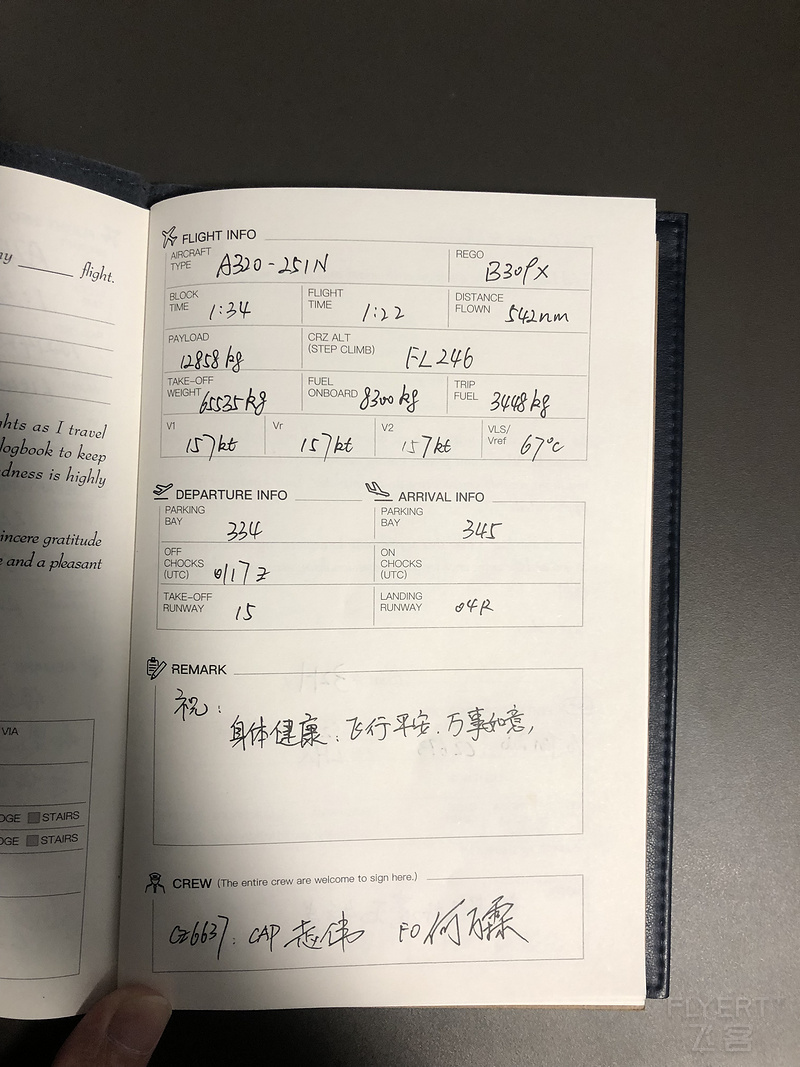 flight.
hts as I travel
logbook to keep
dness is highly
incere gratitude
e and a pleasant
VIA
STAIRS
STAIRS
FLIGHT INFO
AIRCRAFT TYPE A320-251N REGO B309X
BLOCK TIME 1:34 FLIGHT TIME 1:22 DISTANCE FLOWN 542nm
PAYLOAD 12858 kg CRZ ALT (STEP CLIMB) FL246
TAKE-OFF WEIGHT 65535kg FUEL ONBOARD 8300 kg TRIP FUEL 3448kg
V1 157kt Vr 157kt V2 157kt VLS/Vref 67°C
DEPARTURE INFO ARRIVAL INFO
PARKING BAY 334 PARKING BAY 345
OFF CHOCKS (UTC) 0117z ON CHOCKS (UTC)
TAKE-OFF RUNWAY 15 LANDING RUNWAY 04R
REMARK
祝:
身体健康. 飞行平安. 万事如意,
CREW (The entire crew are welcome to sign here.)
CZ6637: CAP 赵伟 FO 何万霖
FLYERT
飞客